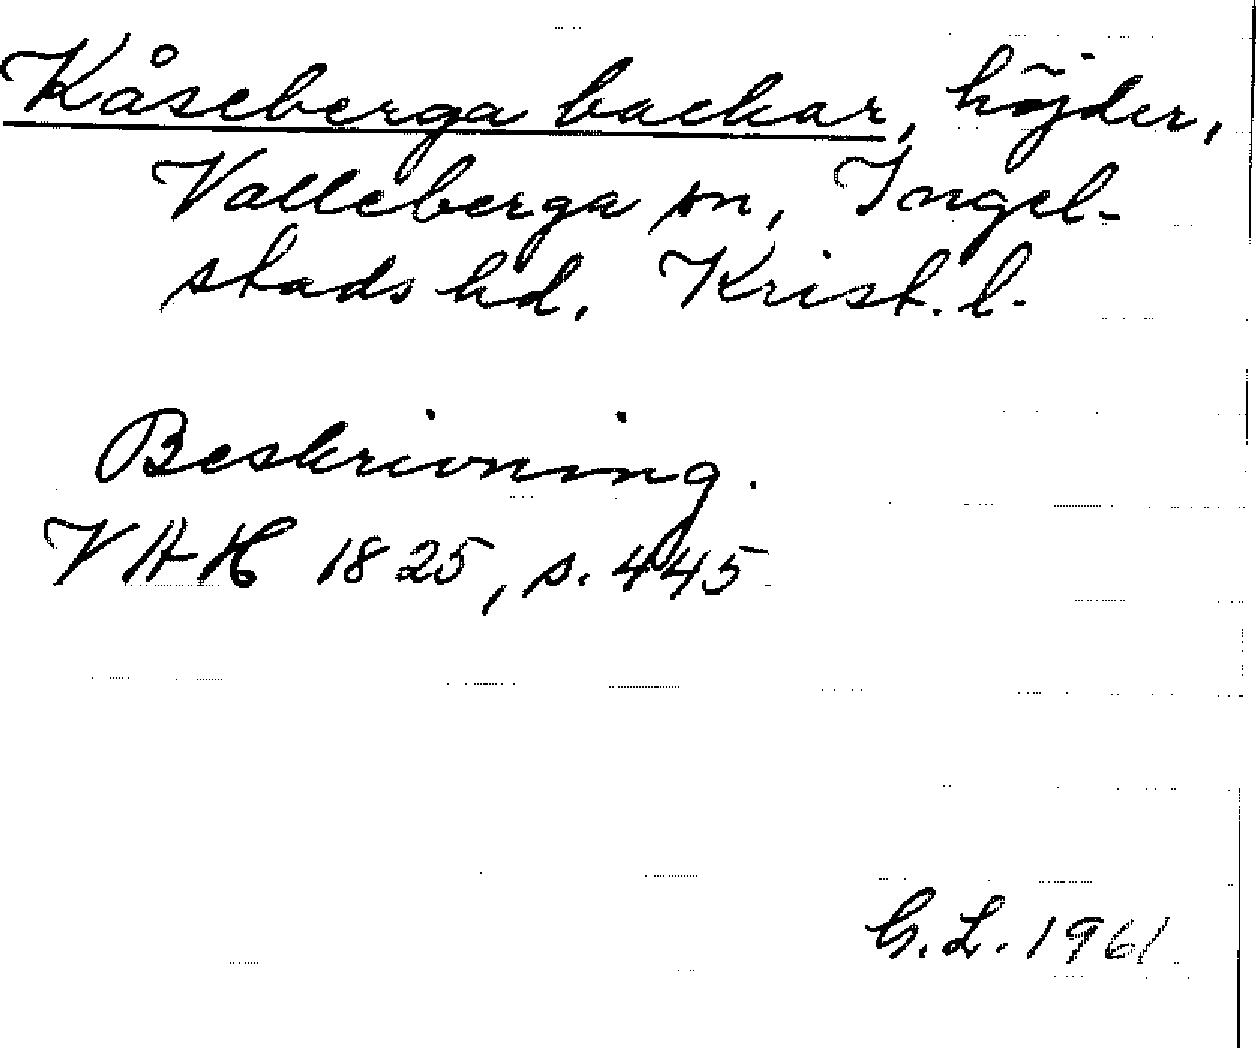 Kåseberga backar, höjder,
Valleberga sn, Ingel-
stads hd. Krist. l.
Beskrivning.
VAH 1825, s. 445
G. L. 1961